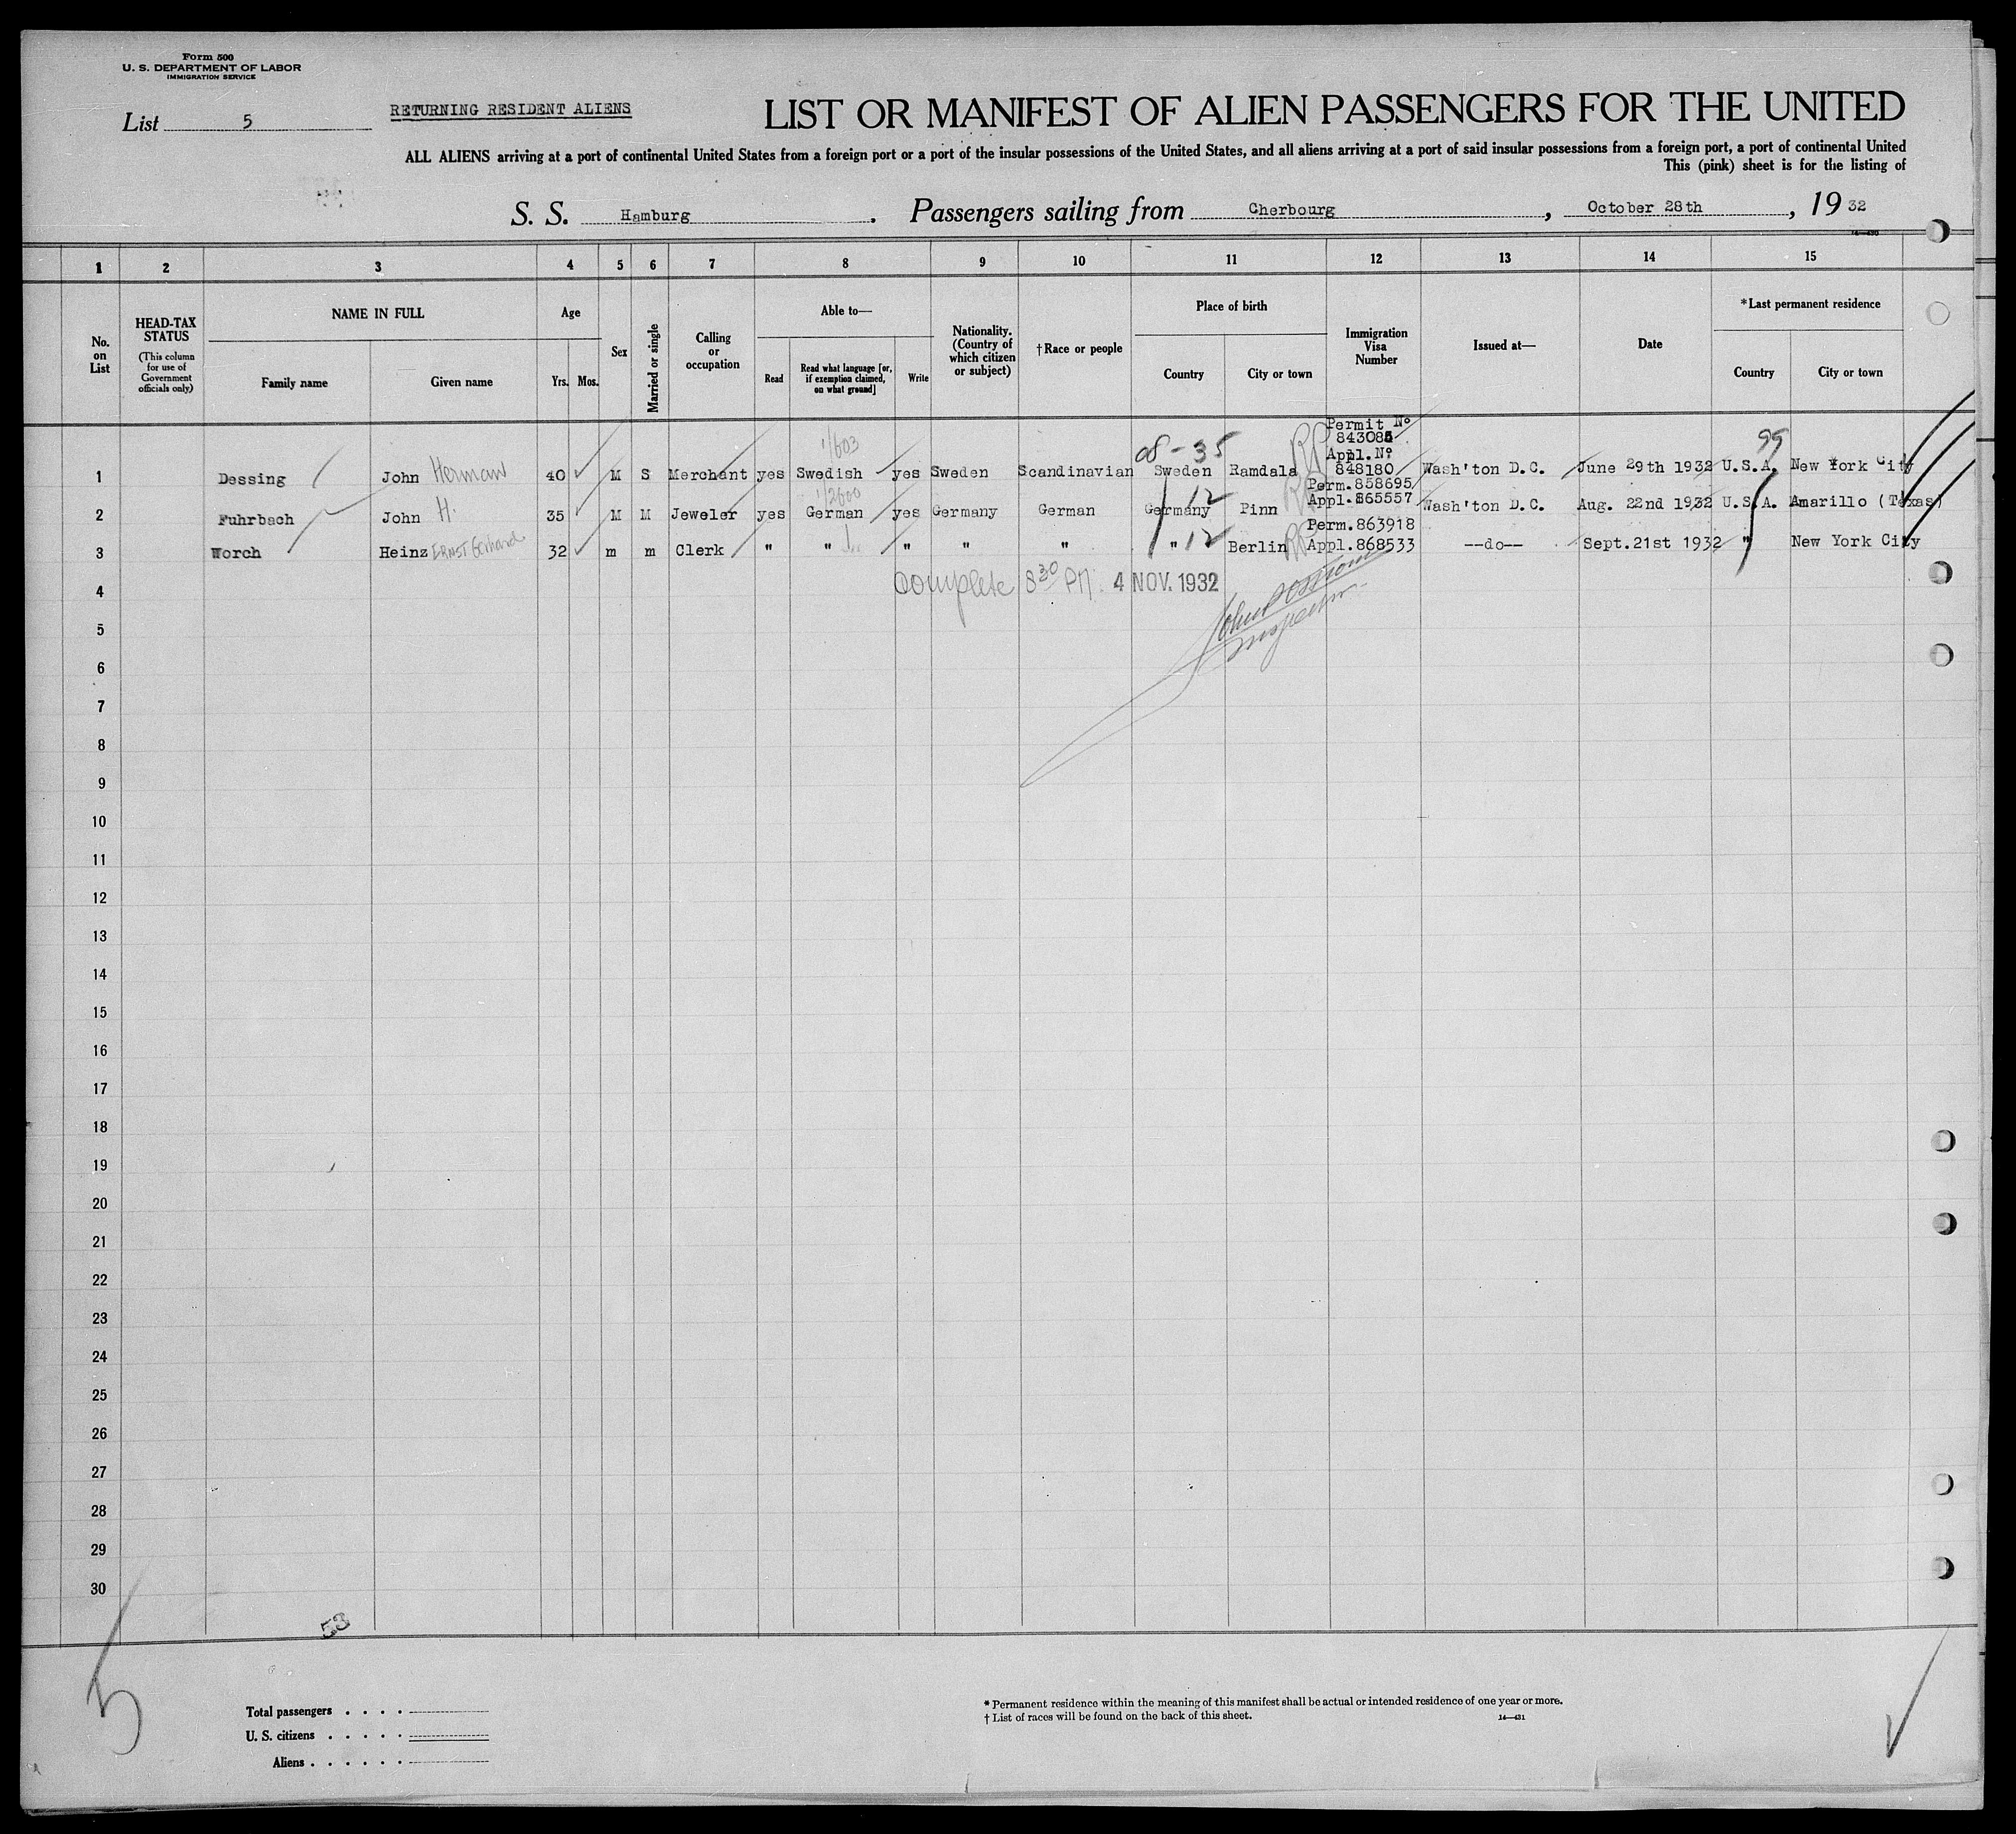 Form 500
U. S. DEPARTMENT OF LABOR
IMMIGRATION SERVICE
List 5
RETURNING RESIDENT ALIENS
LIST OR MANIFEST OF ALIEN PASSENGERS FOR THE UNITED
ALL ALIENS arriving at a port of continental United States from a foreign port or a port of the insular possessions of the United States, and all aliens arriving at a port of said insular possessions from a foreign port, a port of continental United
This (pink) sheet is for the listing of
S. S. Hamburg . Passengers sailing from Cherbourg , October 28th , 19 32
1 2 3 4 5 6 7 8 9 10 11 12 13 14 15
No. on List
HEAD-TAX STATUS
(This column for use of Government officials only)
NAME IN FULL
Family name Given name
Age
Yrs. Mos.
Sex
Married or single
Calling or occupation
Able to—
Read
Read what language [or, if exemption claimed, on what ground]
Write
Nationality. (Country of which citizen or subject)
†Race or people
Place of birth
Country City or town
Immigration Visa Number
Issued at—
Date
*Last permanent residence
Country City or town
08-35 Permit No 99
1/603 843085
Appl. No
1 Dessing John Herman 40 M S Merchant yes Swedish yes Sweden Scandinavian Sweden Ramdala 848180 Wash'ton D.C. June 29th 1932 U.S.A. New York City
1/2600 12 Perm.858695
2 Fuhrbach John H. 35 M M Jeweler yes German yes Germany German Germany Pinn Appl.865557 Wash'ton D.C. Aug. 22nd 1932 U.S.A. Amarillo (Texas)
12 Perm.863918
3 Worch Heinz Ernst Gerhard 32 m m Clerk " " " " " " Berlin Appl.868533 --do-- Sept.21st 1932 " New York City
4 Complete 8 30 PM. 4 NOV. 1932
Inspector
5
6
7
8
9
10
11
12
13
14
15
16
17
18
19
20
21
22
23
24
25
26
27
28
29
30
53
5
Total passengers . . . .
U. S. citizens . . . . .
Aliens . . . . . .
* Permanent residence within the meaning of this manifest shall be actual or intended residence of one year or more.
† List of races will be found on the back of this sheet.
14—431